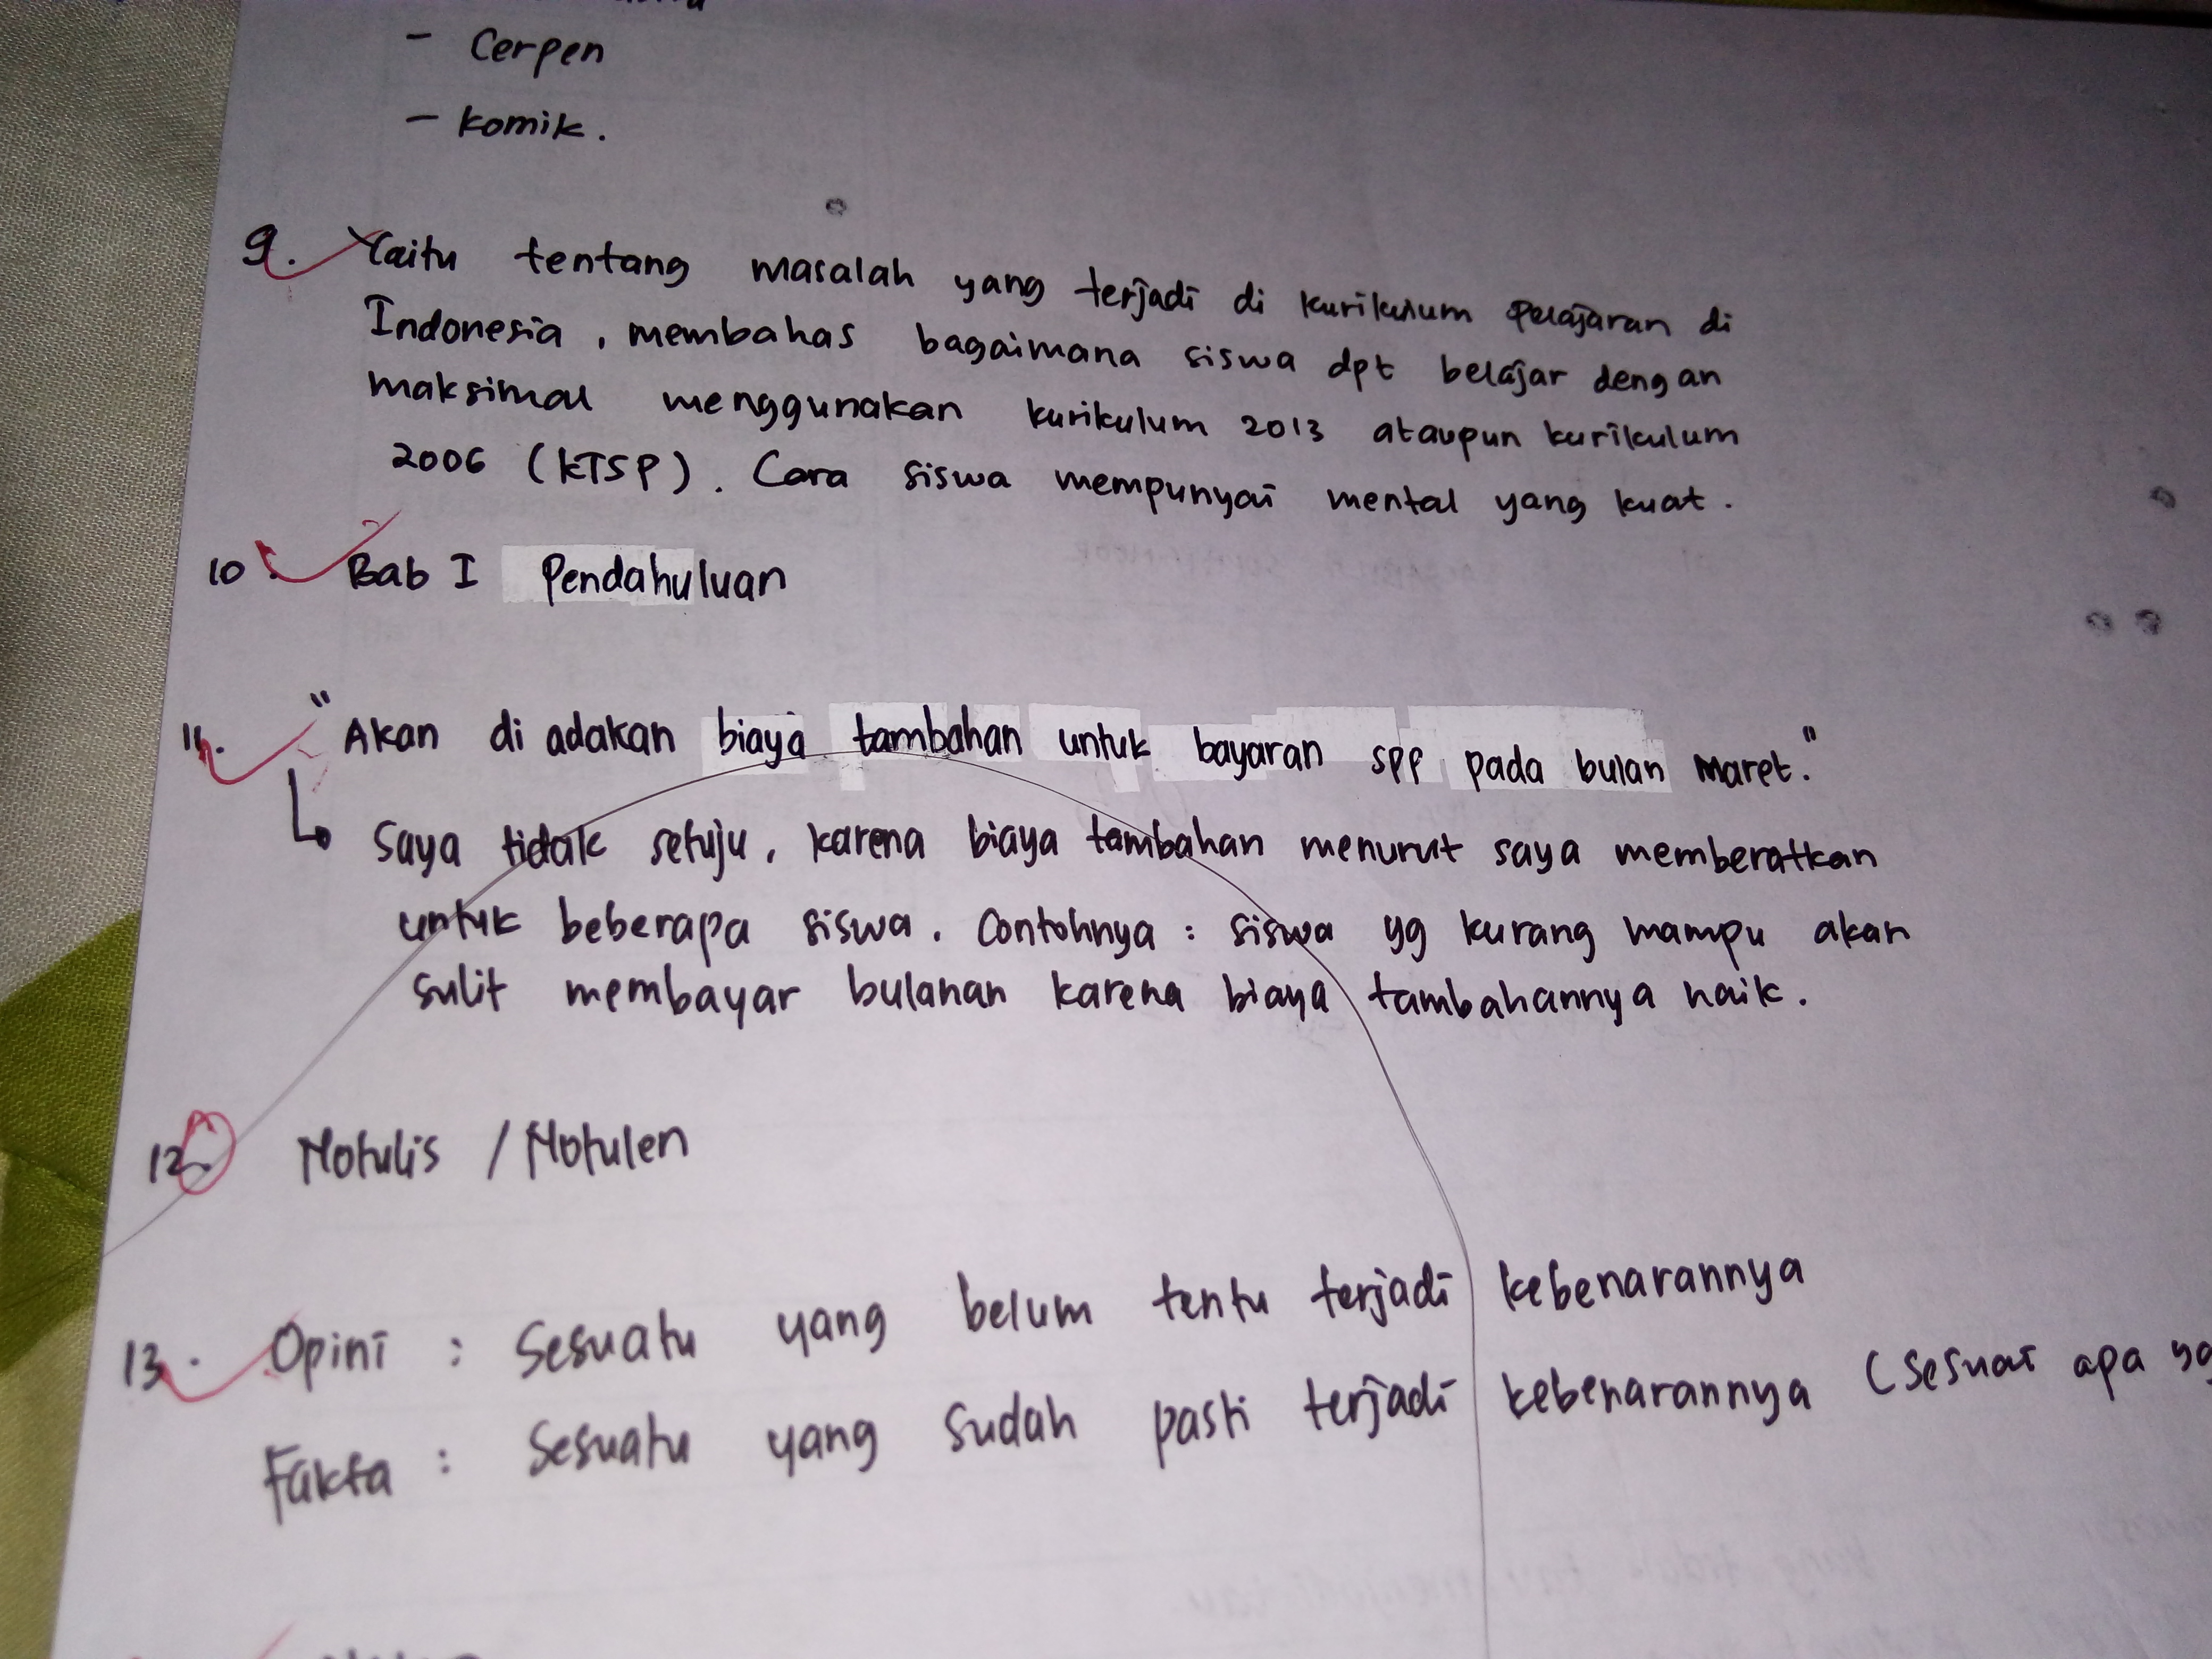 - Cerpen
- komik.
9. Yaitu tentang masalah yang terjadi di kurikulum pelajaran di
Indonesia, membahas bagaimana siswa dpt belajar dengan
maksimal menggunakan kurikulum 2013 ataupun kurikulum
2006 (KTSP). Cara siswa mempunyai mental yang kuat.
10. Bab I Pendahuluan
11. "Akan di adakan biaya tambahan untuk bayaran SPP pada bulan Maret."
↳ Saya tidak setuju, karena biaya tambahan menurut saya memberatkan
untuk beberapa siswa. Contohnya : siswa yg kurang mampu akan
sulit membayar bulanan karena biaya tambahannya naik.
12. Notulis / Notulen
13. Opini : Sesuatu yang belum tentu terjadi kebenarannya
Fakta : Sesuatu yang sudah pasti terjadi kebenarannya (Sesuai apa yg